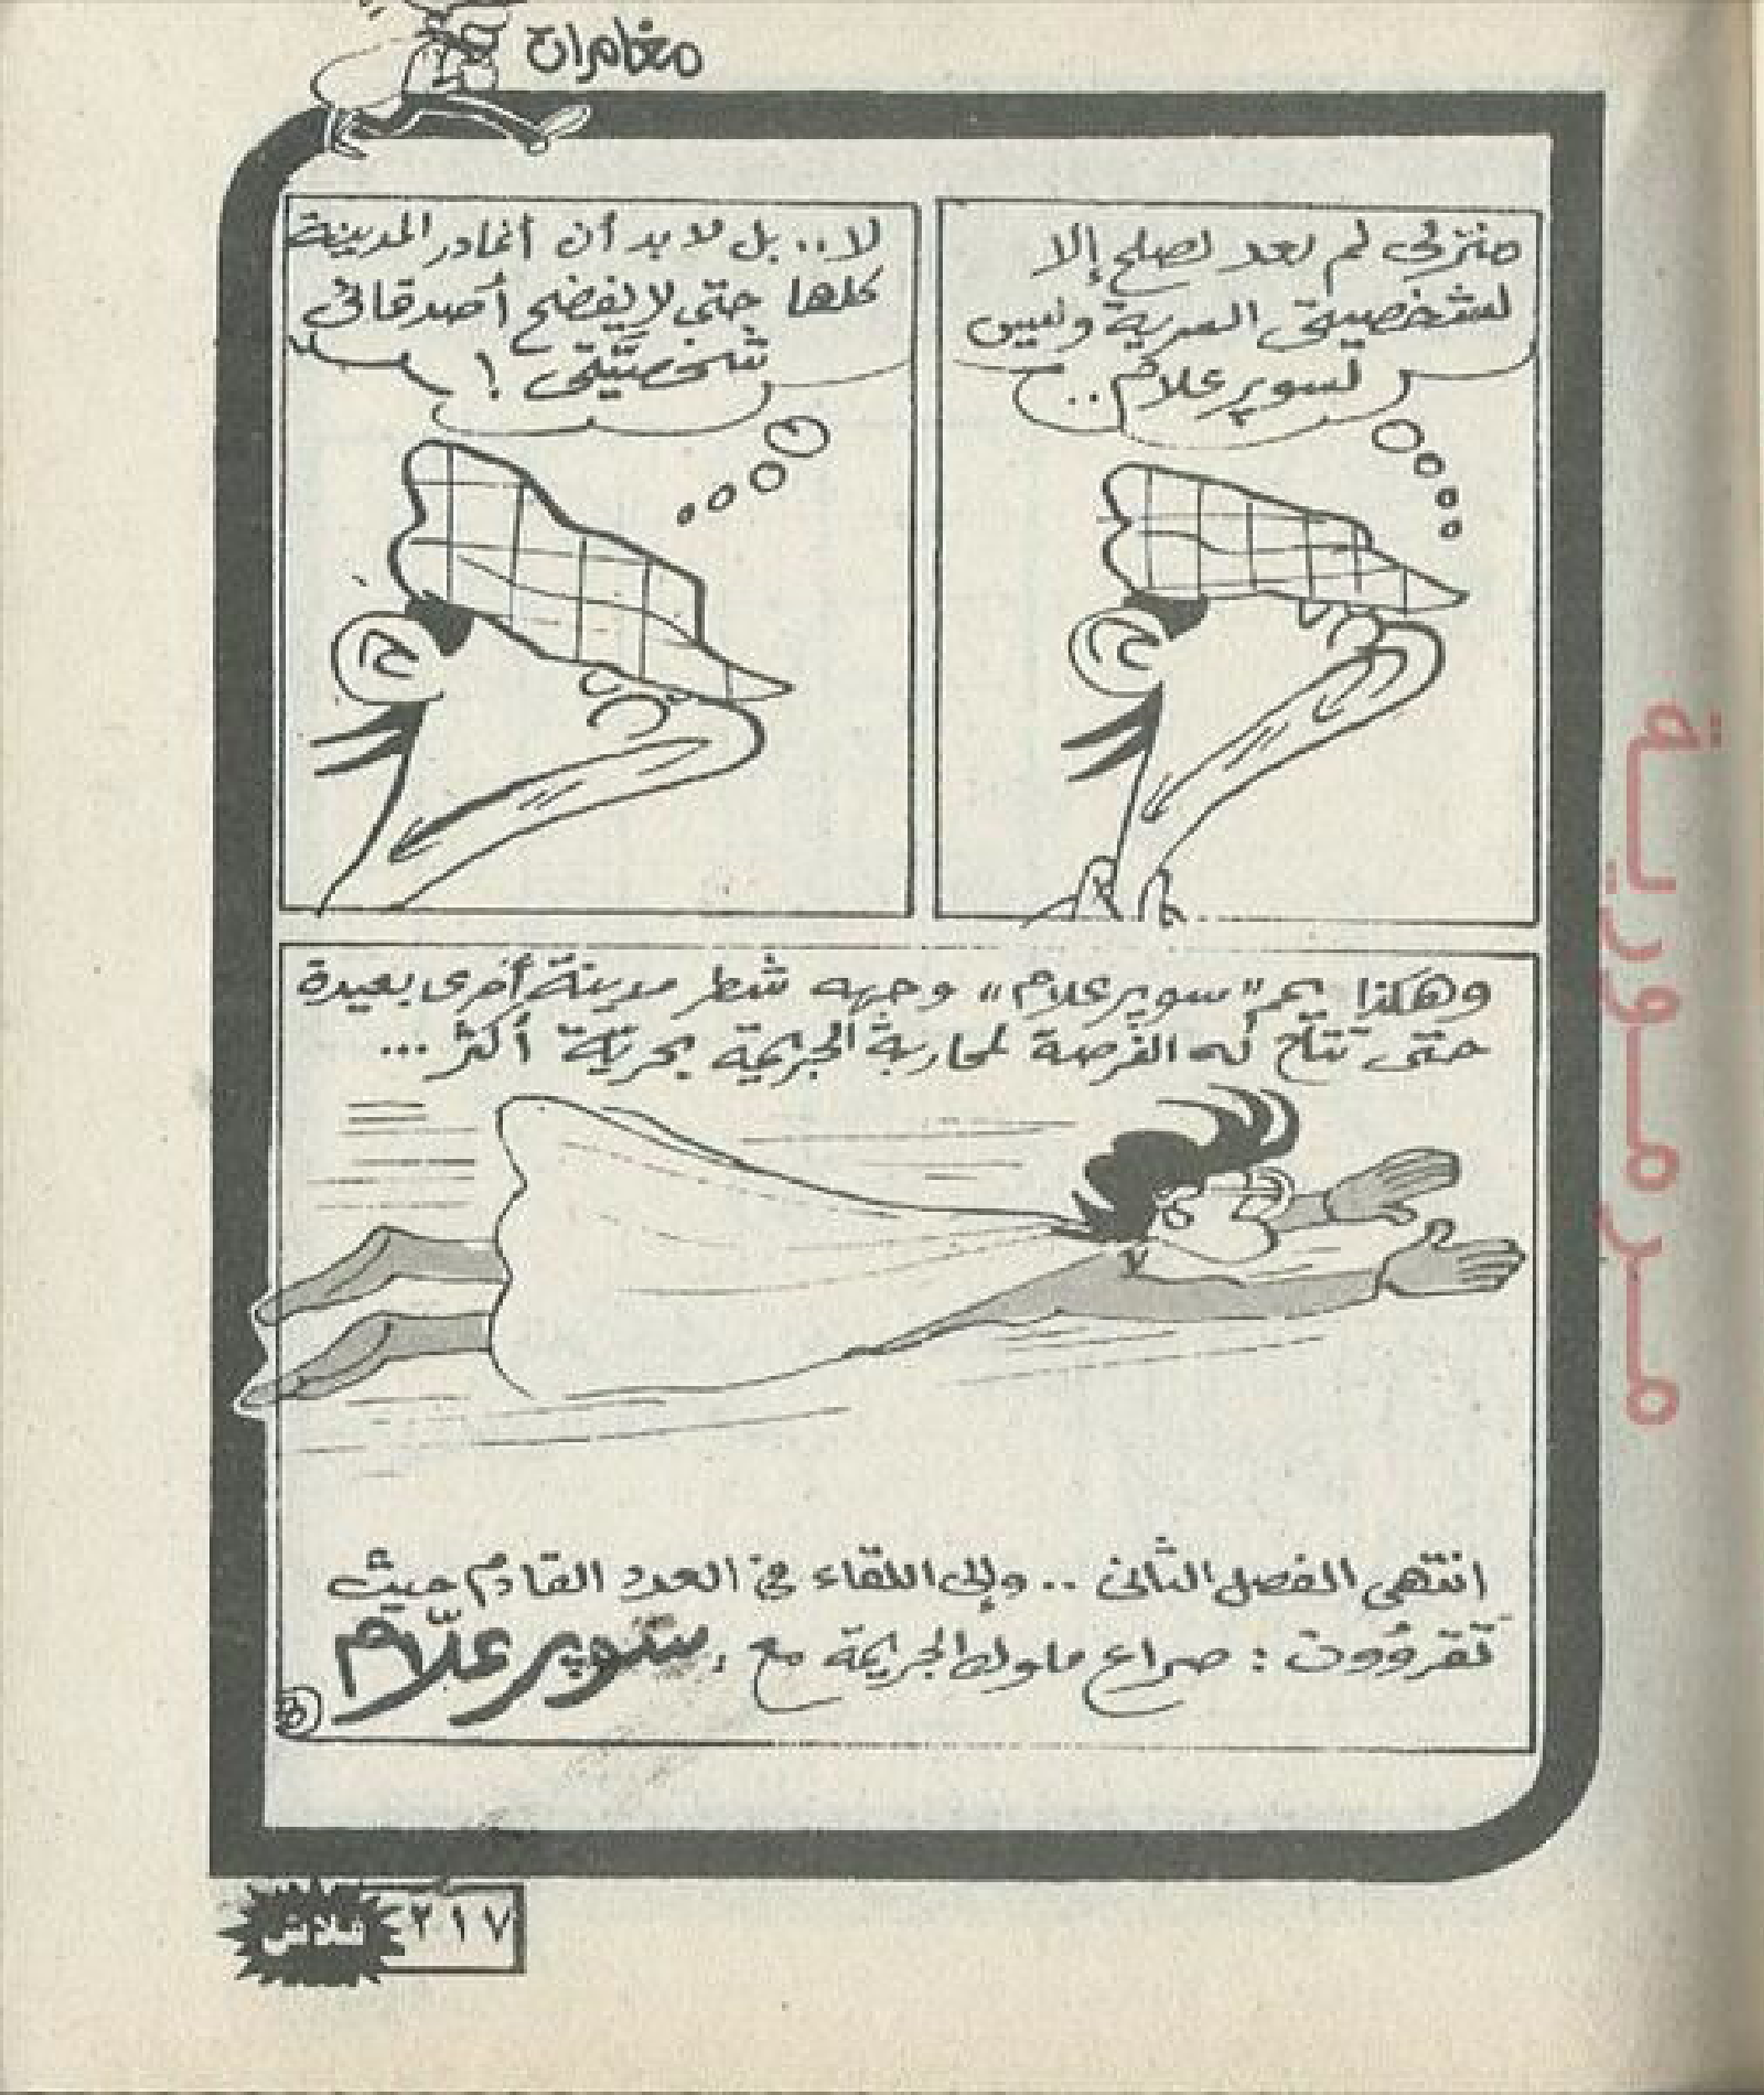 مغامرات
منزلى لم يعد يصلح إلا
لشخصيتى السرية وليس
لسوبر علام..
لا.. بل لابد أن أغادر المدينة
كلها حتى لا يفضح أصدقائى
شخصيتى !
وهكذا يمم "سوبر علام" وجهه شطر مدينة أخرى بعيدة
حتى تتاح له الفرصة لمحاربة الجريمة بحرية أكثر ...
انتهى الفصل الثانى .. وإلى اللقاء فى العدد القادم حيث
تقرؤون : صراع ملوك الجريمة مع : سوبر علّام
٢١٧
فلاش
مرمورية